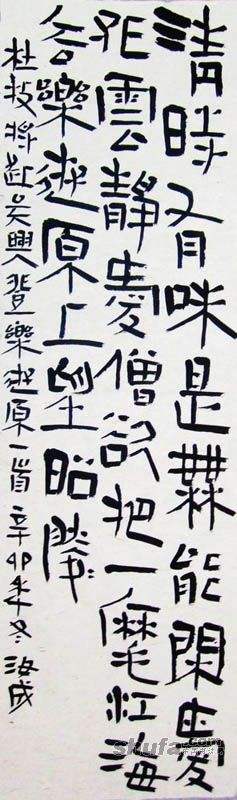 清時有味是無能閑愛
孤雲靜愛僧欲把一麾江海
去樂遊原上望昭陵
杜牧將赴吳興登樂遊原一首辛卯年冬
shufa.com